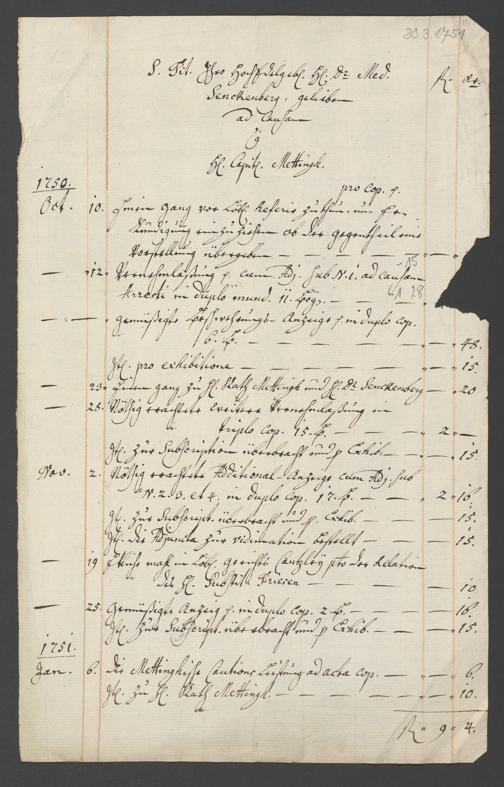 23.3.1751
S. Tit. Ihro HochEdelgeb. H. Dr. Med.
Senckenberg. gelieben
ad Causam
H. Capit. Mettingh.
pro Cop. p.
1750.
Oct. 10. Einen Gang vor Löbl. Referir
ob der Gegentheil eine
Vorstellung übergeben
15
— 12. Vernehmlassung p. cum Adj. sub N. 1. ad Causam
Arresti in duplo mund. 11. bog.
1 28
gemüßigte Anzeige p. in duplo Cop.
6. b. — 48.
It. pro exhibitione — 15.
— 23. Einen Gang zu H. Rath Mettingh und H. Dr. Senckenberg — 20
— 28. Nöthig erachtete Vernehmlassung in
triplo Cop. 15. b. — 2 " —
It. zur Subscription überbracht und p Exhib. — 15
Nov. 2. Nöthig erachtete Additional-Anzeige cum Adj. sub
N. 2. 3. et 4. in duplo Cop. 17. b. — 2 " 16
It. zur Subscript. überbracht und p. Exhib. — 15.
It. die Adjuncta zur Vidimation bestellt — 15.
— 19 in Löbl. Gerichts Cantzley pto der Relation
des H. Substit. Friesen — 10
— 25. Gemüßigte Anzeig p. in duplo Cop. 2. b. — 16
It. zur Subscript. überbracht und p Exhib. — 15.
1751.
Jan. 6. die Mettinghische Cautions Leistung ad acta Cop. — 6.
It. zu H. Rath Mettingh. — 10.
R " 9 " 4.